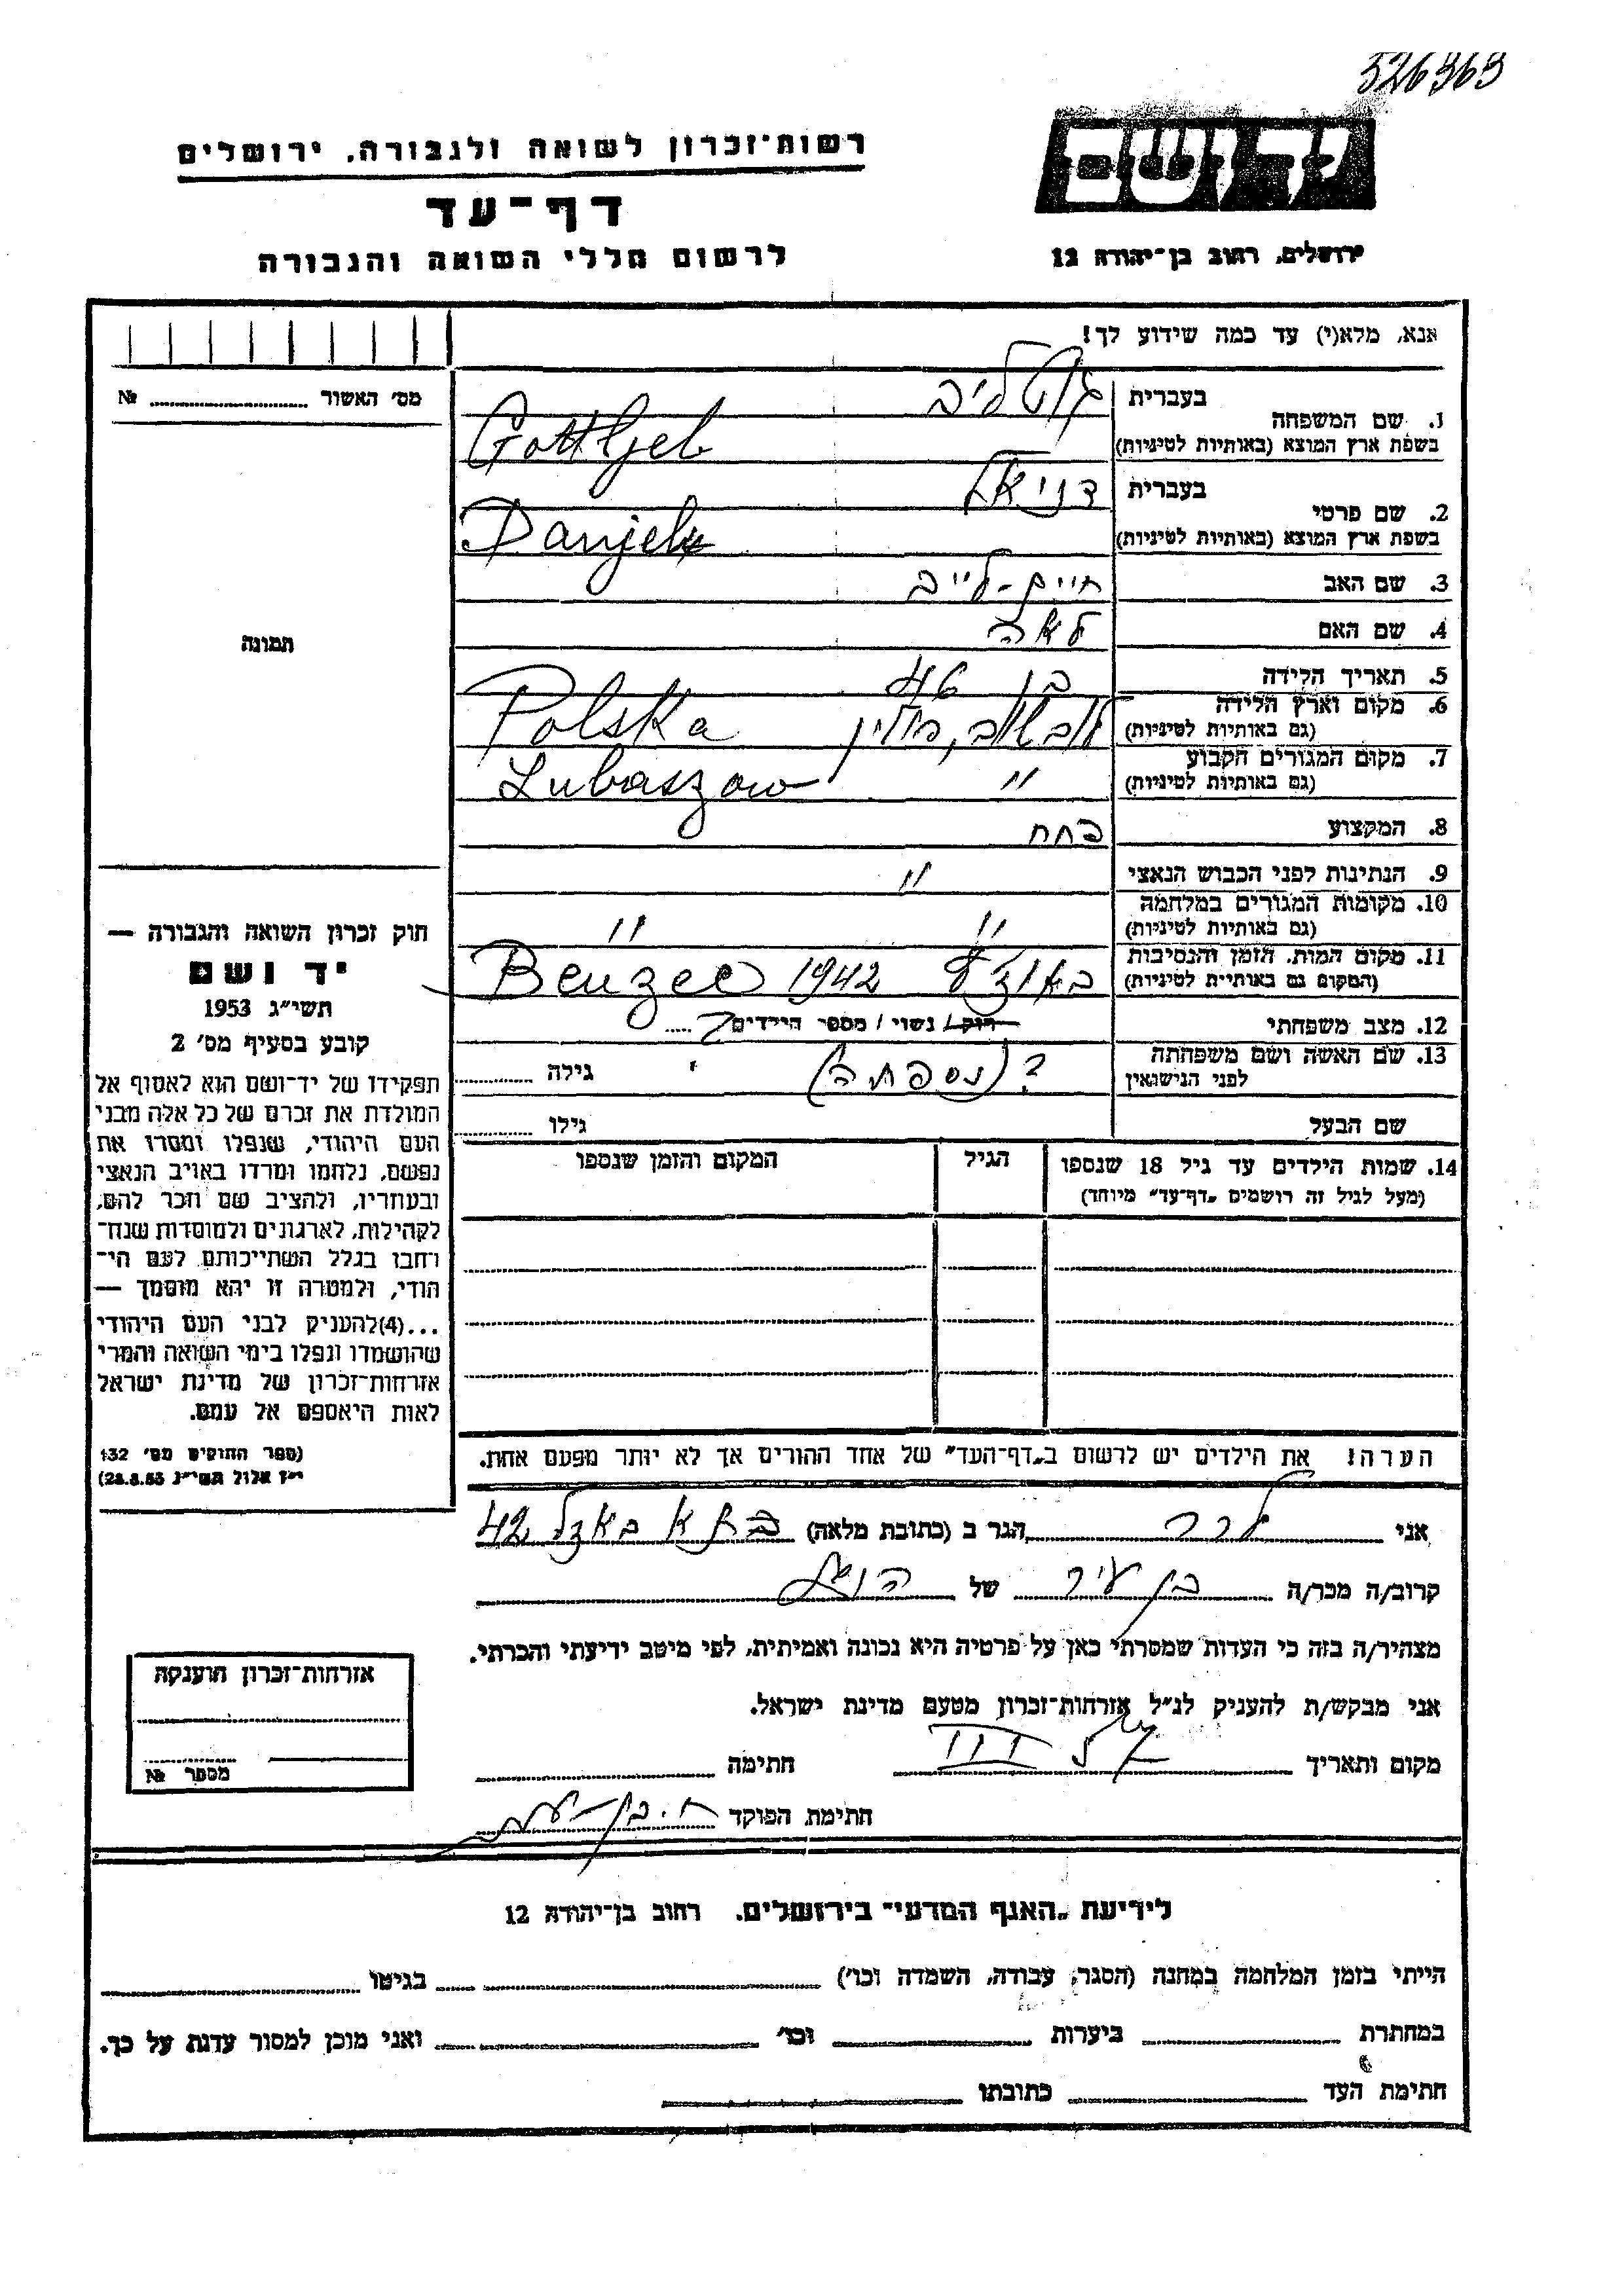 326363
יד ושם
רשות-זכרון לשואה ולגבורה, ירושלים
דף-עד
לרשום חללי השואה והגבורה
ירושלים, רחוב בן-יהודה 12
אנא, מלא(י) עד כמה שידוע לך!
מס' האשור № 
1. שם המשפחה
בעברית גוטליב
בשפת ארץ המוצא (באותיות לטיניות) Gottljeb
2. שם פרטי
בעברית דניאל
בשפת ארץ המוצא (באותיות לטיניות) Danjel
3. שם האב חיים-לייב
4. שם האם לאה
5. תאריך הלידה בן 46
6. מקום וארץ הלידה
(גם באותיות לטיניות) פולין Polska
7. מקום המגורים הקבוע
(גם באותיות לטיניות) " Lubaszow
8. המקצוע פחח
9. הנתינות לפני הכבוש הנאצי "
10. מקומות המגורים במלחמה
(גם באותיות לטיניות) " "
11. מקום המות, הזמן והנסיבות
(המקום גם באותיות לטיניות) 1942 Beuzec
12. מצב משפחתי רוק / נשוי / מספר הילדים
13. שם האשה ושם משפחתה
לפני הנישואין ? (נספתה) גילה
שם הבעל גילו
14. שמות הילדים עד גיל 18 שנספו הגיל המקום והזמן שנספו
(מעל לגיל זה רושמים „דף-עד" מיוחד)
הערה! את הילדים יש לרשום ב„דף-העד" של אחד ההורים אך לא יותר מפעם אחת.
תמונה
חוק זכרון השואה והגבורה —
יד ושם
תשי"ג 1953
קובע בסעיף מס' 2
תפקידו של יד-ושם הוא לאסוף אל
המולדת את זכרם של כל אלה מבני
העם היהודי, שנפלו ומסרו את
נפשם, נלחמו ומרדו באויב הנאצי
ובעוזריו, ולהציב שם וזכר להם,
לקהילות, לארגונים ולמוסדות שנח-
רבו בגלל השתייכותם לעם הי-
הודי, ולמטרה זו יהא מוסמך —
...(4)להעניק לבני העם היהודי
שהושמדו ונפלו בימי השואה והמרי
אזרחות-זכרון של מדינת ישראל
לאות היאספם אל עמם.
(ספר החוקים מס' 132
י"ז אלול תשי"ג 28.8.53)
אני הגר ב (כתובת מלאה) 42
קרוב/ה מכר/ה בן עיר של הנ"ל
מצהיר/ה בזה כי העדות שמסרתי כאן על פרטיה היא נכונה ואמיתית, לפי מיטב ידיעתי והכרתי.
אני מבקש/ת להעניק לנ"ל אזרחות-זכרון מטעם מדינת ישראל.
מקום ותאריך חתימה
חתימת הפוקד
אזרחות-זכרון הוענקה
מספר №
לידיעת „האגף המדעי" בירושלים, רחוב בן-יהודה 12
הייתי בזמן המלחמה במחנה (הסגר, עבודה, השמדה וכו') בגיטו
במחתרת ביערות וכו' ואני מוכן למסור עדות על כך.
חתימת העד כתובתו